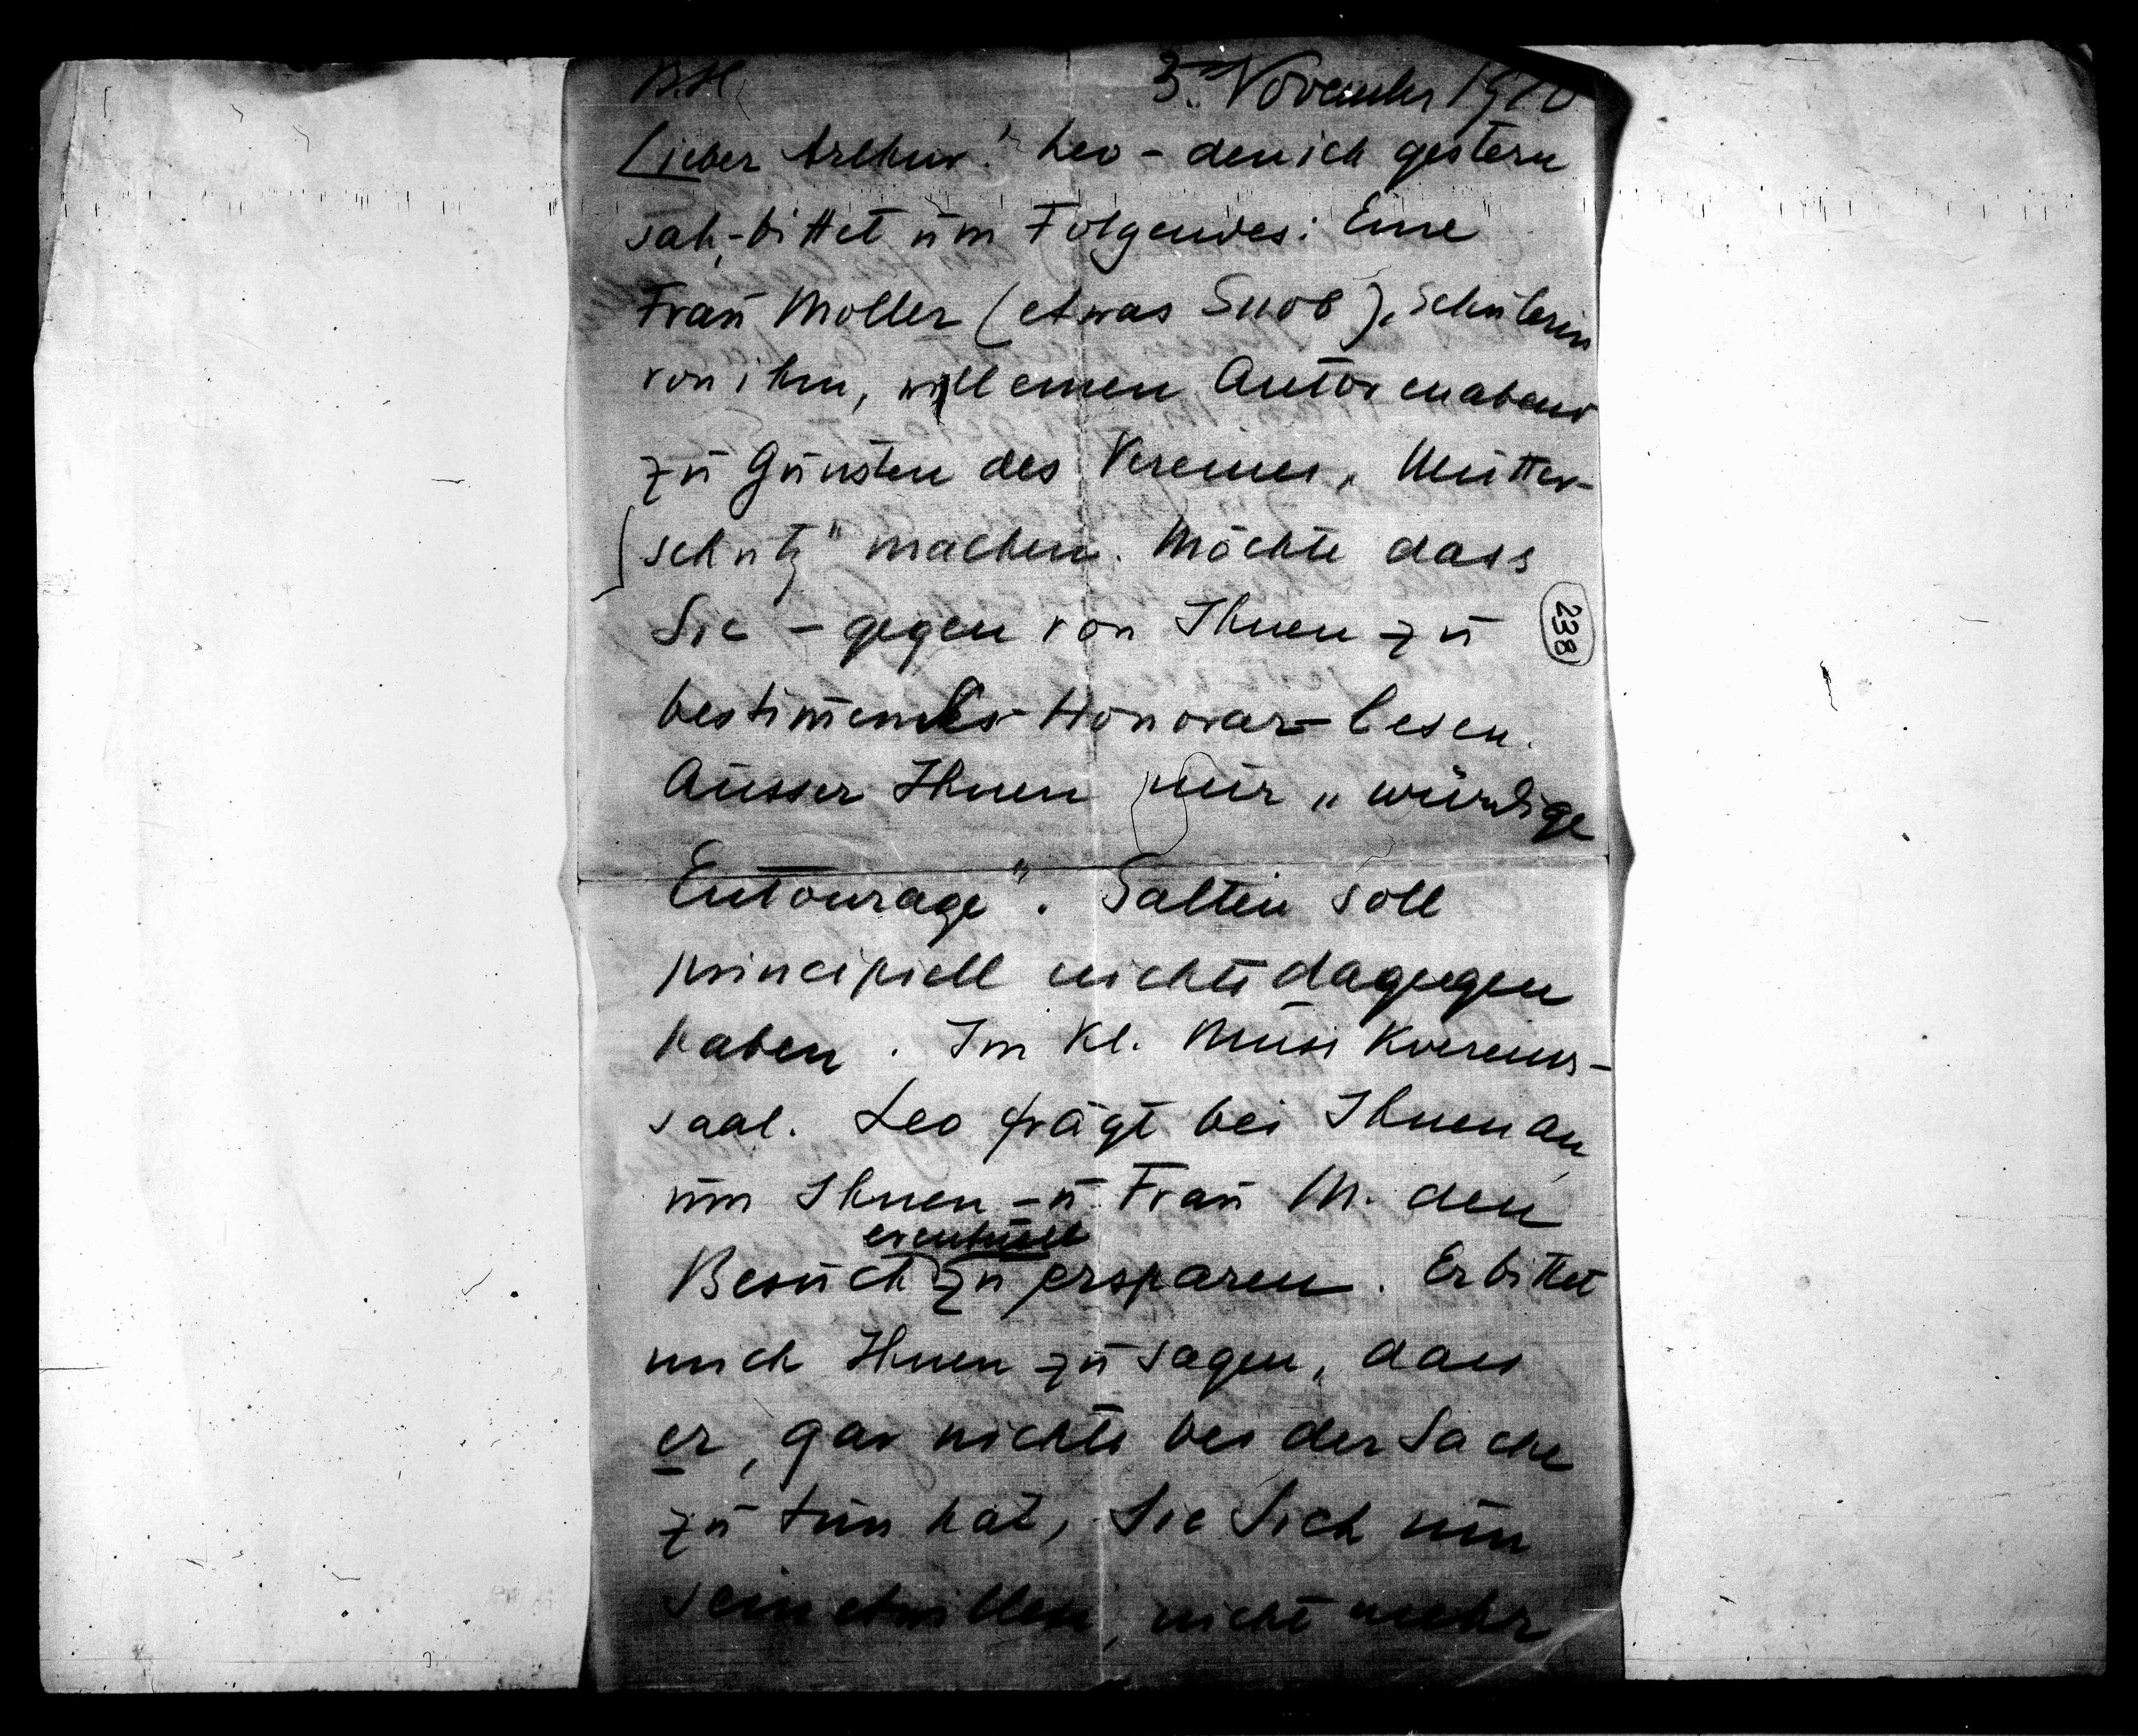 B.H. 3. November 1910
Lieber Arthur! Leo – den ich gestern
sah, – bittet um Folgendes: Eine
Frau Moller (etwas Snob), Schülerin
von ihm, will einen Autorenabend
zu Gunsten des Vereines „Mutter-
schutz" machen. Möchte dass
Sie – gegen von Ihnen zu
bestimmendes Honorar – lesen.
Ausser Ihnen nur „würdige
Entourage". Salten soll
principiell nichts dagegen
haben. Im kl. Musikvereins-
saal. Leo frägt bei Ihnen an
um Ihnen – u Frau M. den
eventuell
Besuch zu ersparen. Er bittet
mich Ihnen zu sagen, dass
er, gar nichts bei der Sache
zu tun hat, Sie Sich um
seinetwillen, nicht mehr
238